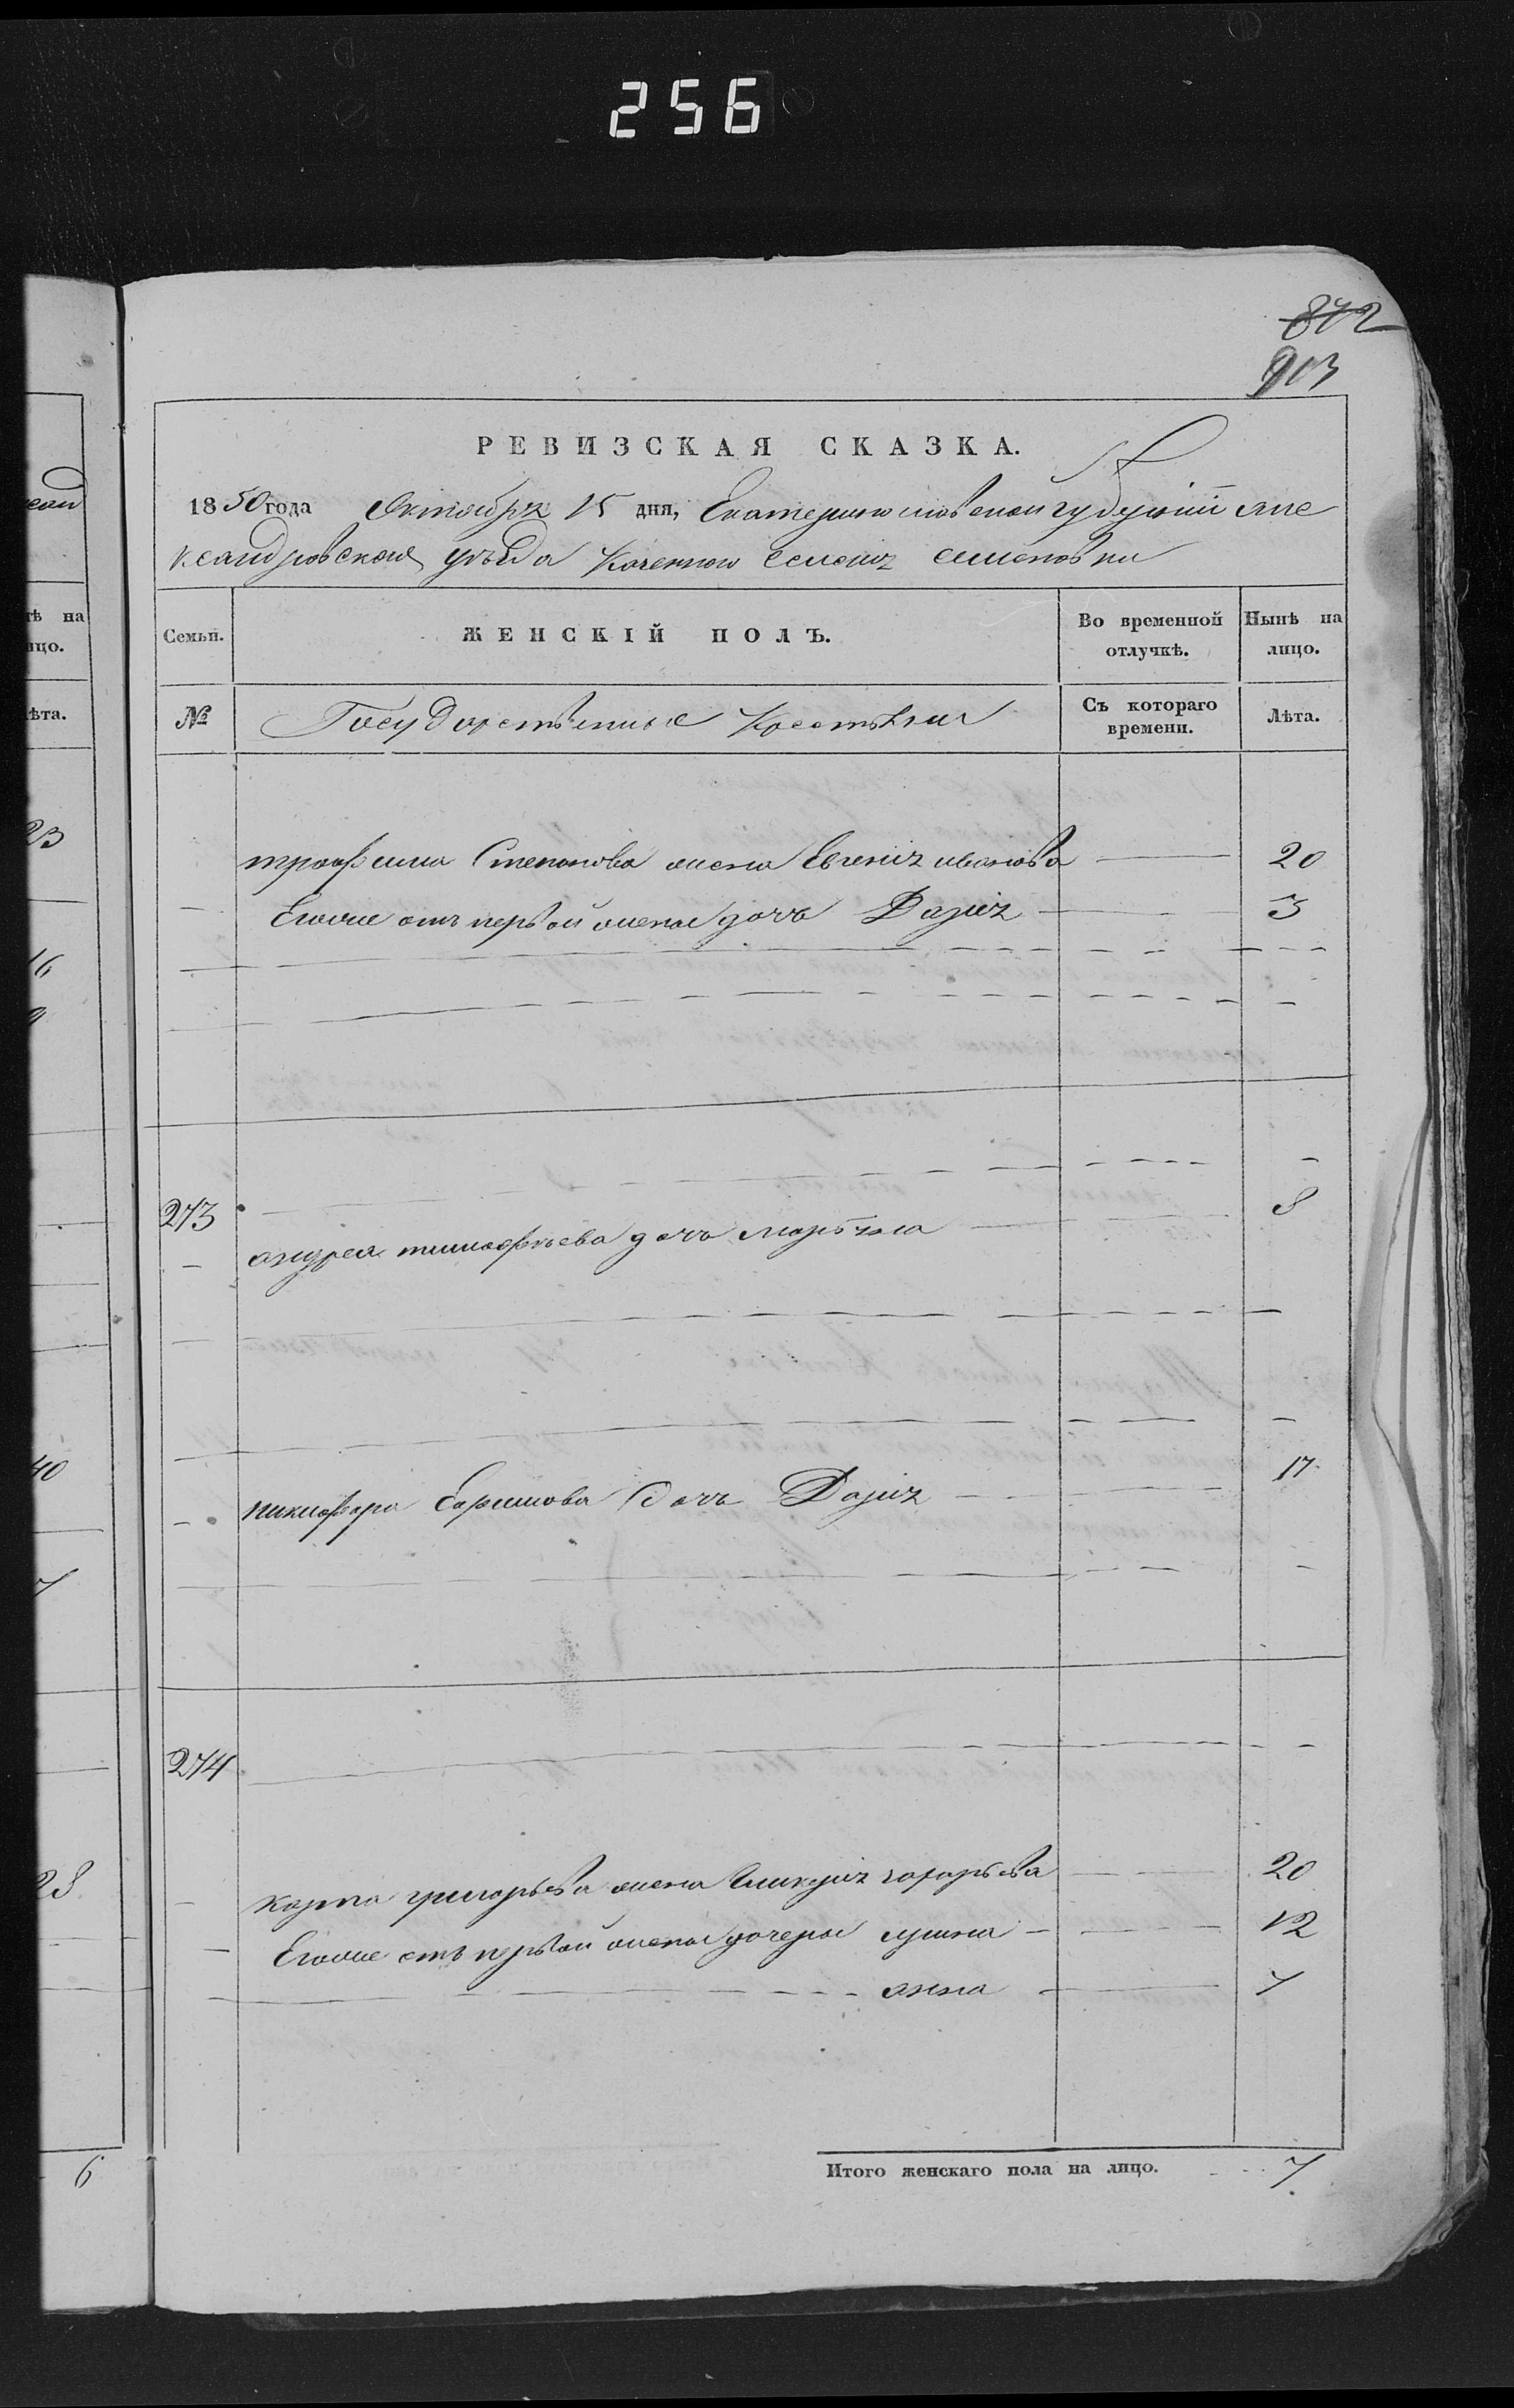 256
872
903
РЕВИЗСКАЯ СКАЗКА.
1850 года Октября 15 дня, Екатеринославской губерніи Але
ксандровскаго уѣзда Казенного селенія семеновки
Семьи. ЖЕНСКІЙ ПОЛЪ. Во временной отлучкѣ. Нынѣ на лицо.
№ Государственные Крестьяни Съ котораго времени. Лѣта.
трофима Степанова жена Евгенія иванова 20
Егоже отъ первой жены дочь Дарія 3
273
андрея тимофѣева дочь марѣяна 8
никифора Ефимова дочь Дарія 17
274
карпа григорьева жена гликерія 20
Егоже отъ первой жены дочери ирина 12
анна 7
Итого женскаго пола на лицо. 7
еан
тѣ на
ицо.
ѣта.
23
16
9
40
7
28
6